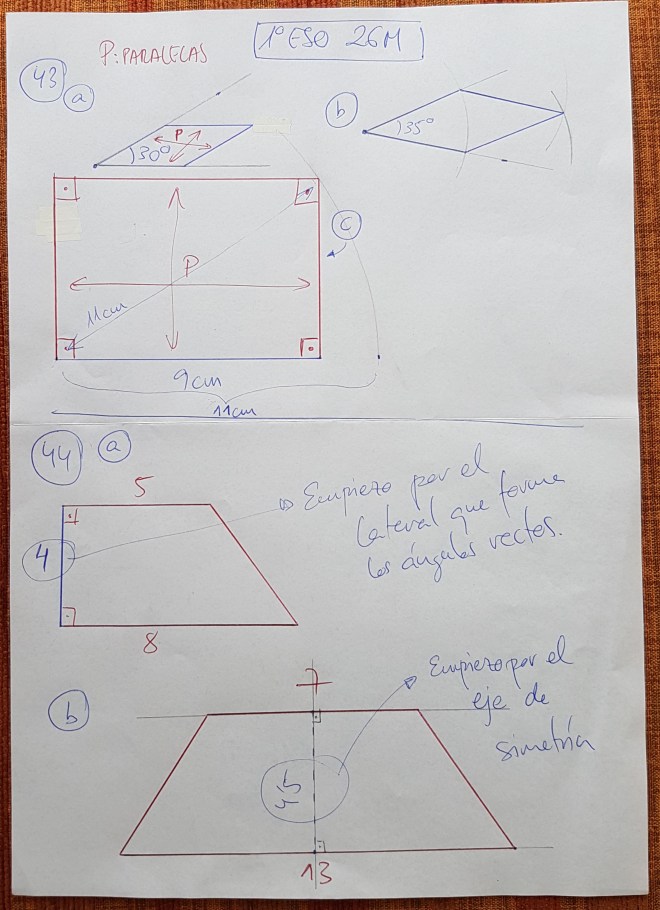 P: PARALELAS
1º ESO 26M
43
a
b
P
30º
35º
c
P
11cm
9cm
11cm
44
a
5
4
8
Empiezo por el
lateral que forma
los ángulos rectos.
b
7
13
Empiezo por el
eje de
simetría